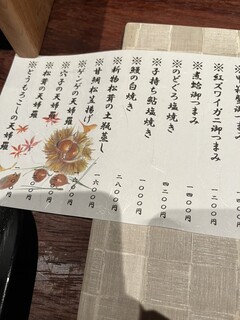 ※紅ズワイガニ御つまみ 一二〇〇円
※煮蛤御つまみ 一四〇〇円
※のどぐろ塩焼き 四二〇〇円
※子持ち鮎塩焼き 一〇〇〇円
※鰻の白焼き
※新物松茸の土瓶蒸し 二八〇〇円
※甘鯛松笠揚げ 一六〇〇円
※ゲンゲの天婦羅
※穴子の天婦羅
※松茸の天婦羅
※とうもろこしの天婦羅